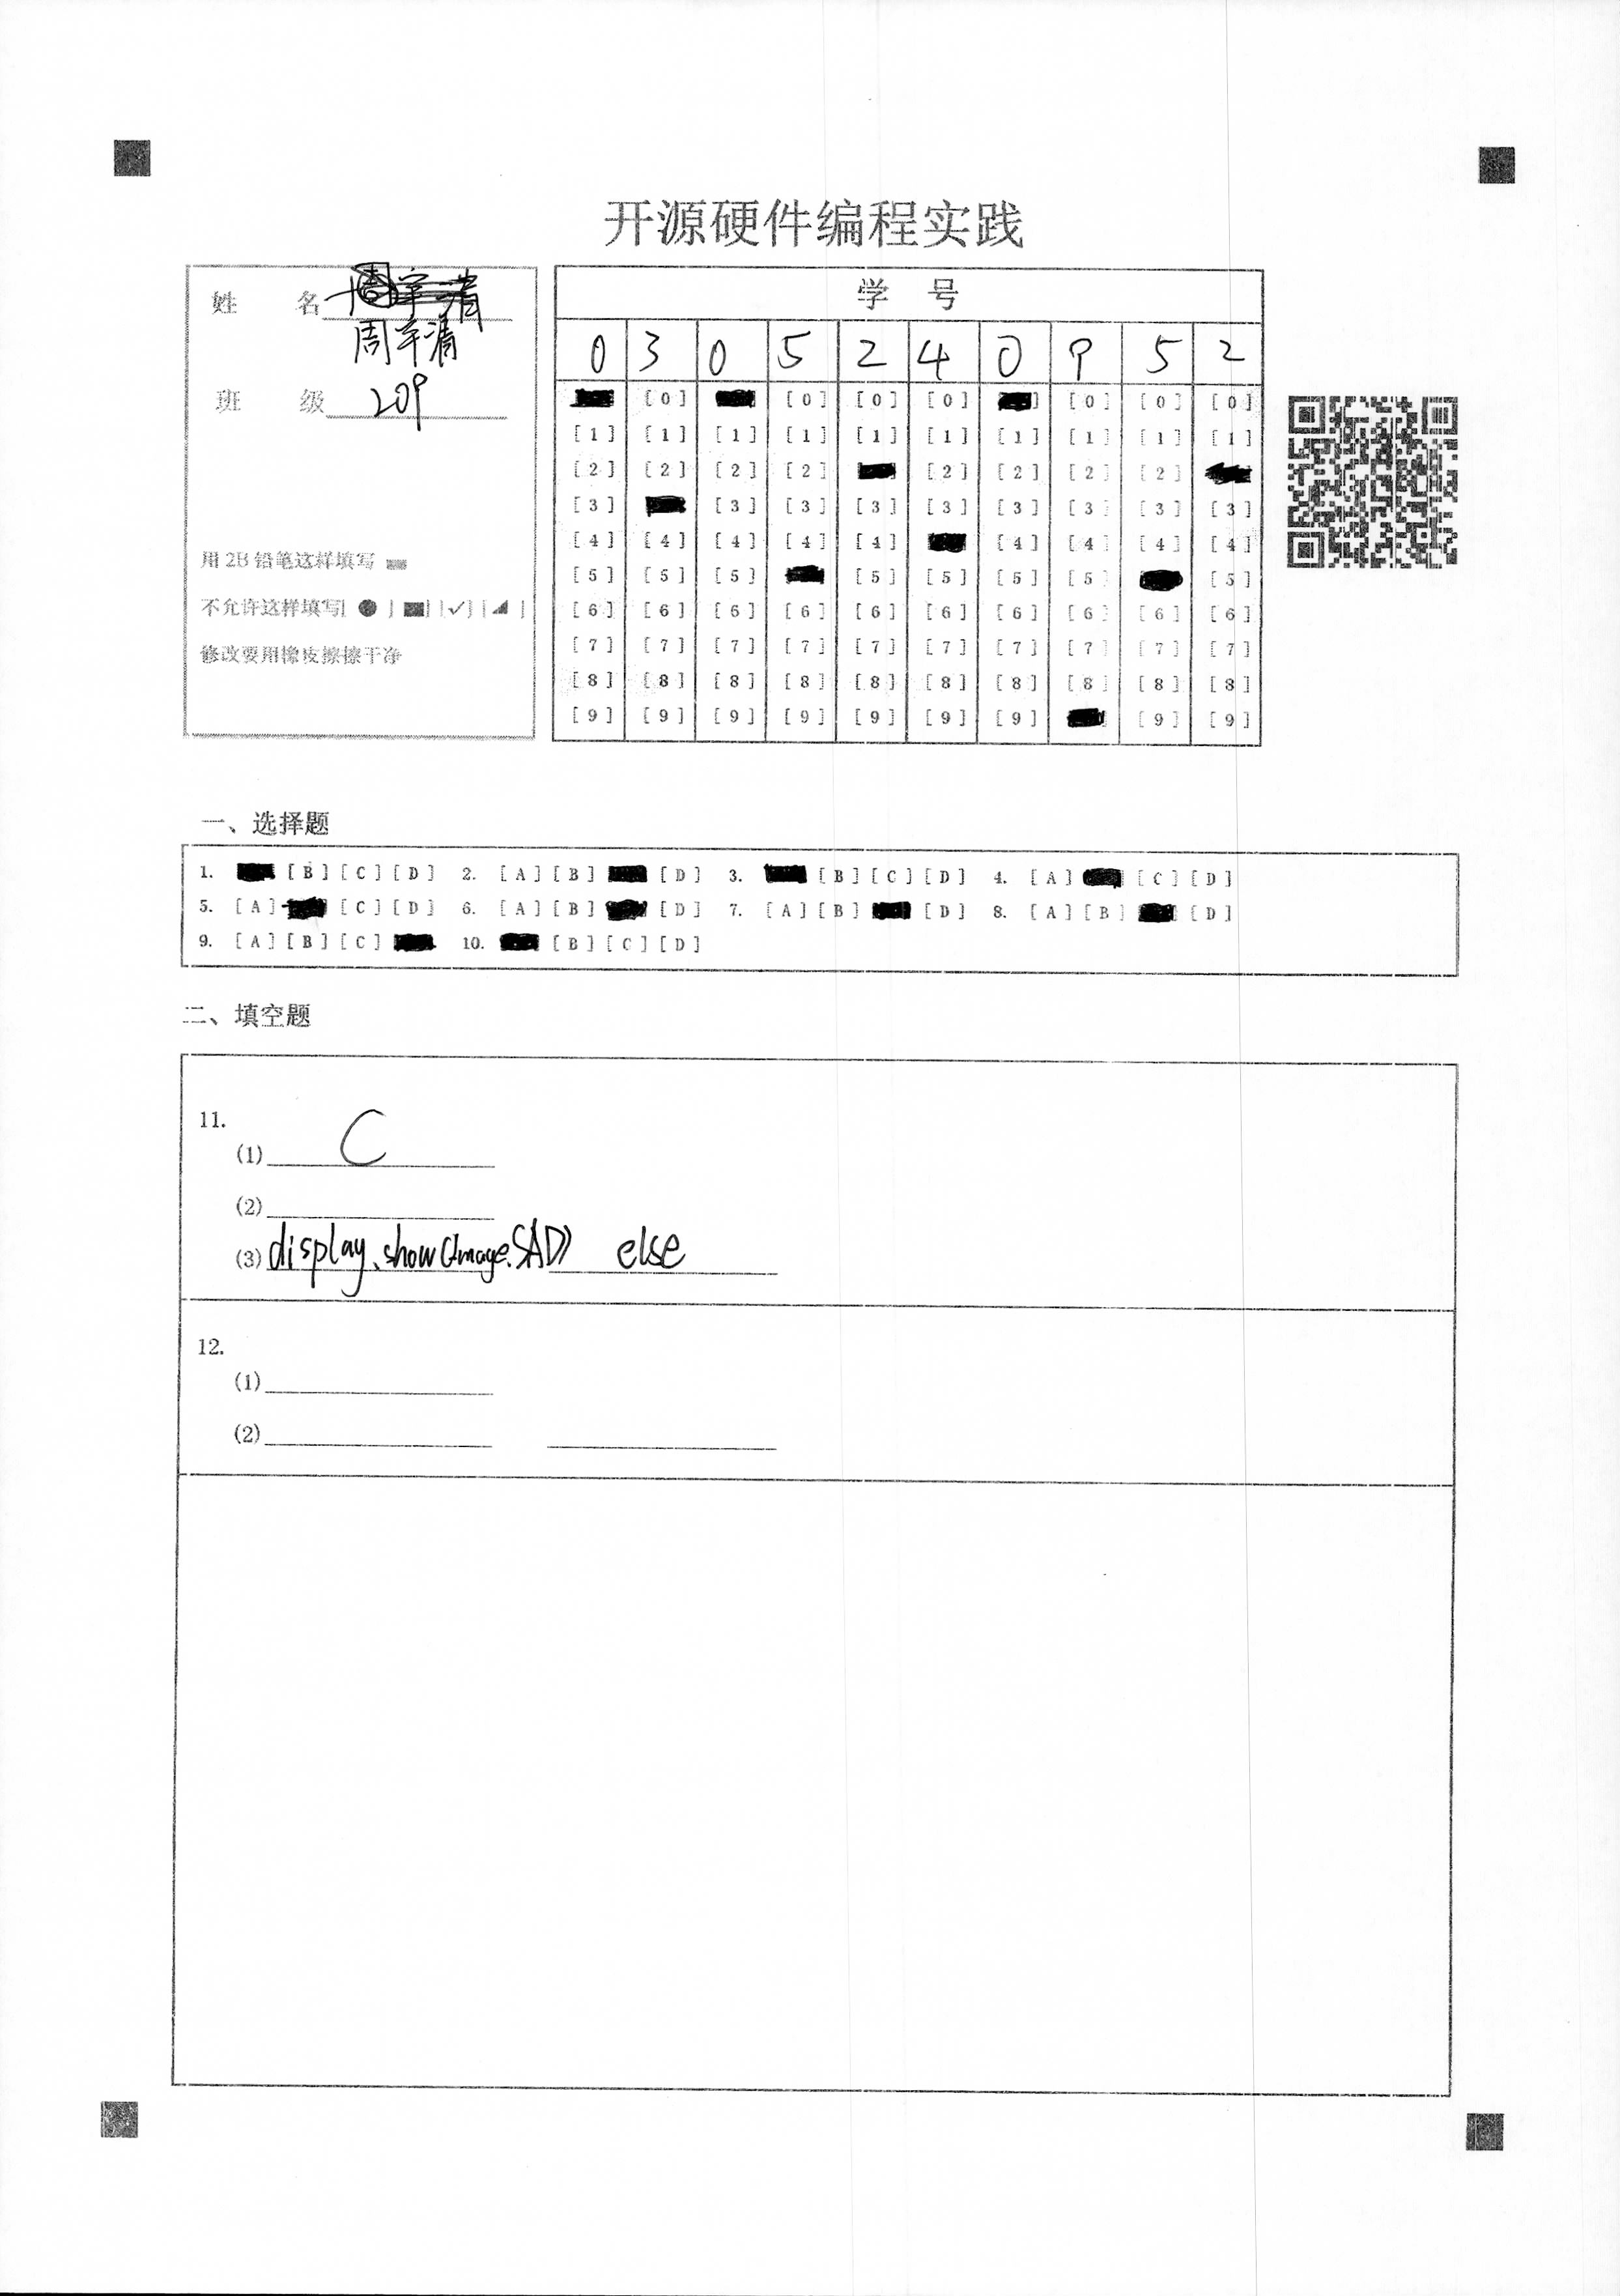 开源硬件编程实践
姓 名
周宇清
班 级 209
用 2B 铅笔这样填写
不允许这样填写[ ● ] [■] [✓] [◢ ]
修改要用橡皮擦擦干净
学 号
0 3 0 5 2 4 0 9 5 2
[0] [0] [0] [0] [0] [0] [0]
[1] [1] [1] [1] [1] [1] [1] [1] [1] [1]
[2] [2] [2] [2] [2] [2] [2] [2]
[3] [3] [3] [3] [3] [3] [3] [3] [3]
[4] [4] [4] [4] [4] [4] [4] [4] [4]
[5] [5] [5] [5] [5] [5] [5] [5]
[6] [6] [6] [6] [6] [6] [6] [6] [6] [6]
[7] [7] [7] [7] [7] [7] [7] [7] [7] [7]
[8] [8] [8] [8] [8] [8] [8] [8] [8] [8]
[9] [9] [9] [9] [9] [9] [9] [9] [9]
一、选择题
1. [B] [C] [D] 2. [A] [B] [D] 3. [B] [C] [D] 4. [A] [C] [D]
5. [A] [C] [D] 6. [A] [B] [D] 7. [A] [B] [D] 8. [A] [B] [D]
9. [A] [B] [C] 10. [B] [C] [D]
二、填空题
11.
(1) C
(2)
(3) display.show(Image.SAD) else
12.
(1)
(2)